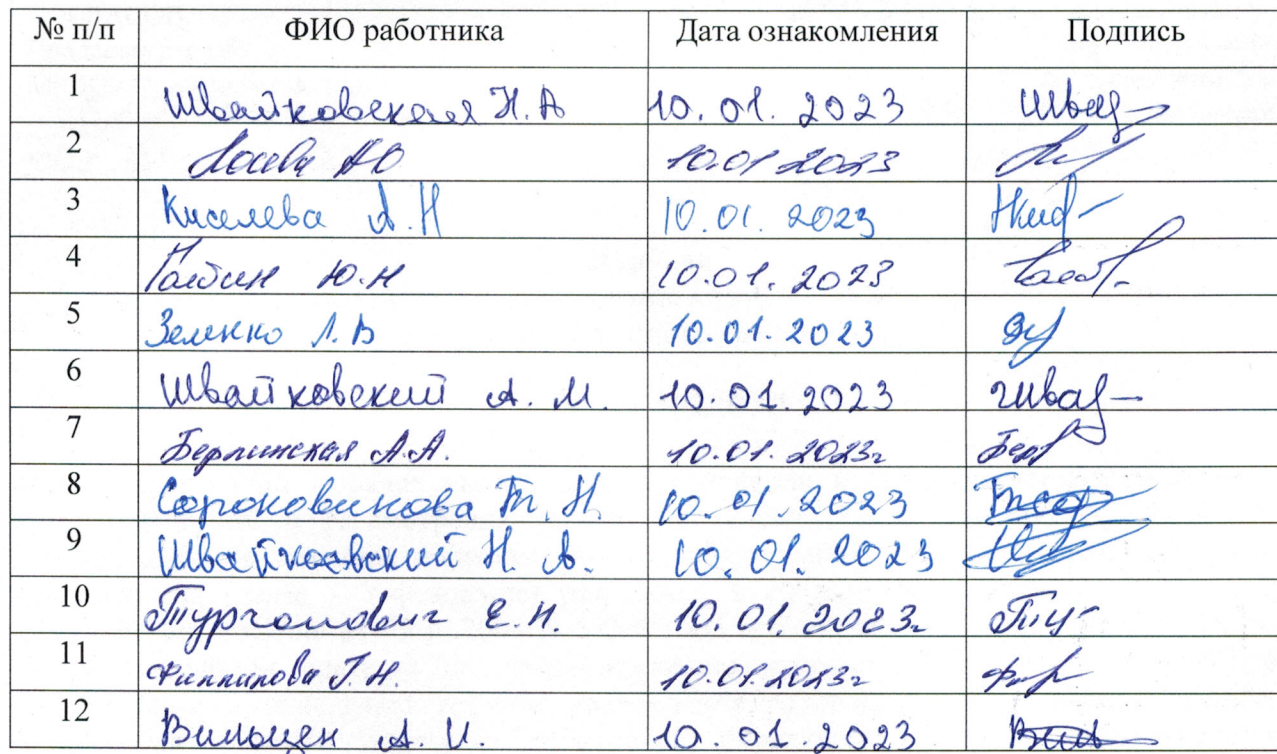 № п/п ФИО работника Дата ознакомления Подпись
1 Швайковская Н.А 10.01.2023 Швай
2 Лосева АЮ 10.01 2023
3 Киселева А.Н 10.01.2023
4 Ю.Н 10.01.2023
5 Зеленко Л.В 10.01.2023
6 Швайковский А.М. 10.01.2023
7 Берлинская А.А. 10.01.2023г
8 Сороковикова Т.Н. 10.01.2023
9 Швайковский Н.А. 10.01.2023
10 Е.Н. 10.01.2023г
11 Филлипова Г.Н. 10.01.2023г
12 Вильцен А.И. 10.01.2023